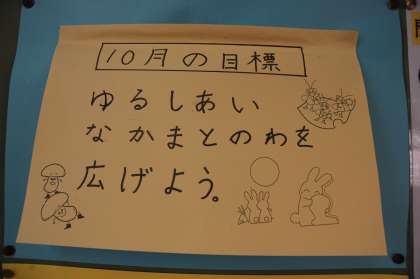 10月の目標
ゆるしあい
なかまとのわを
広げよう。